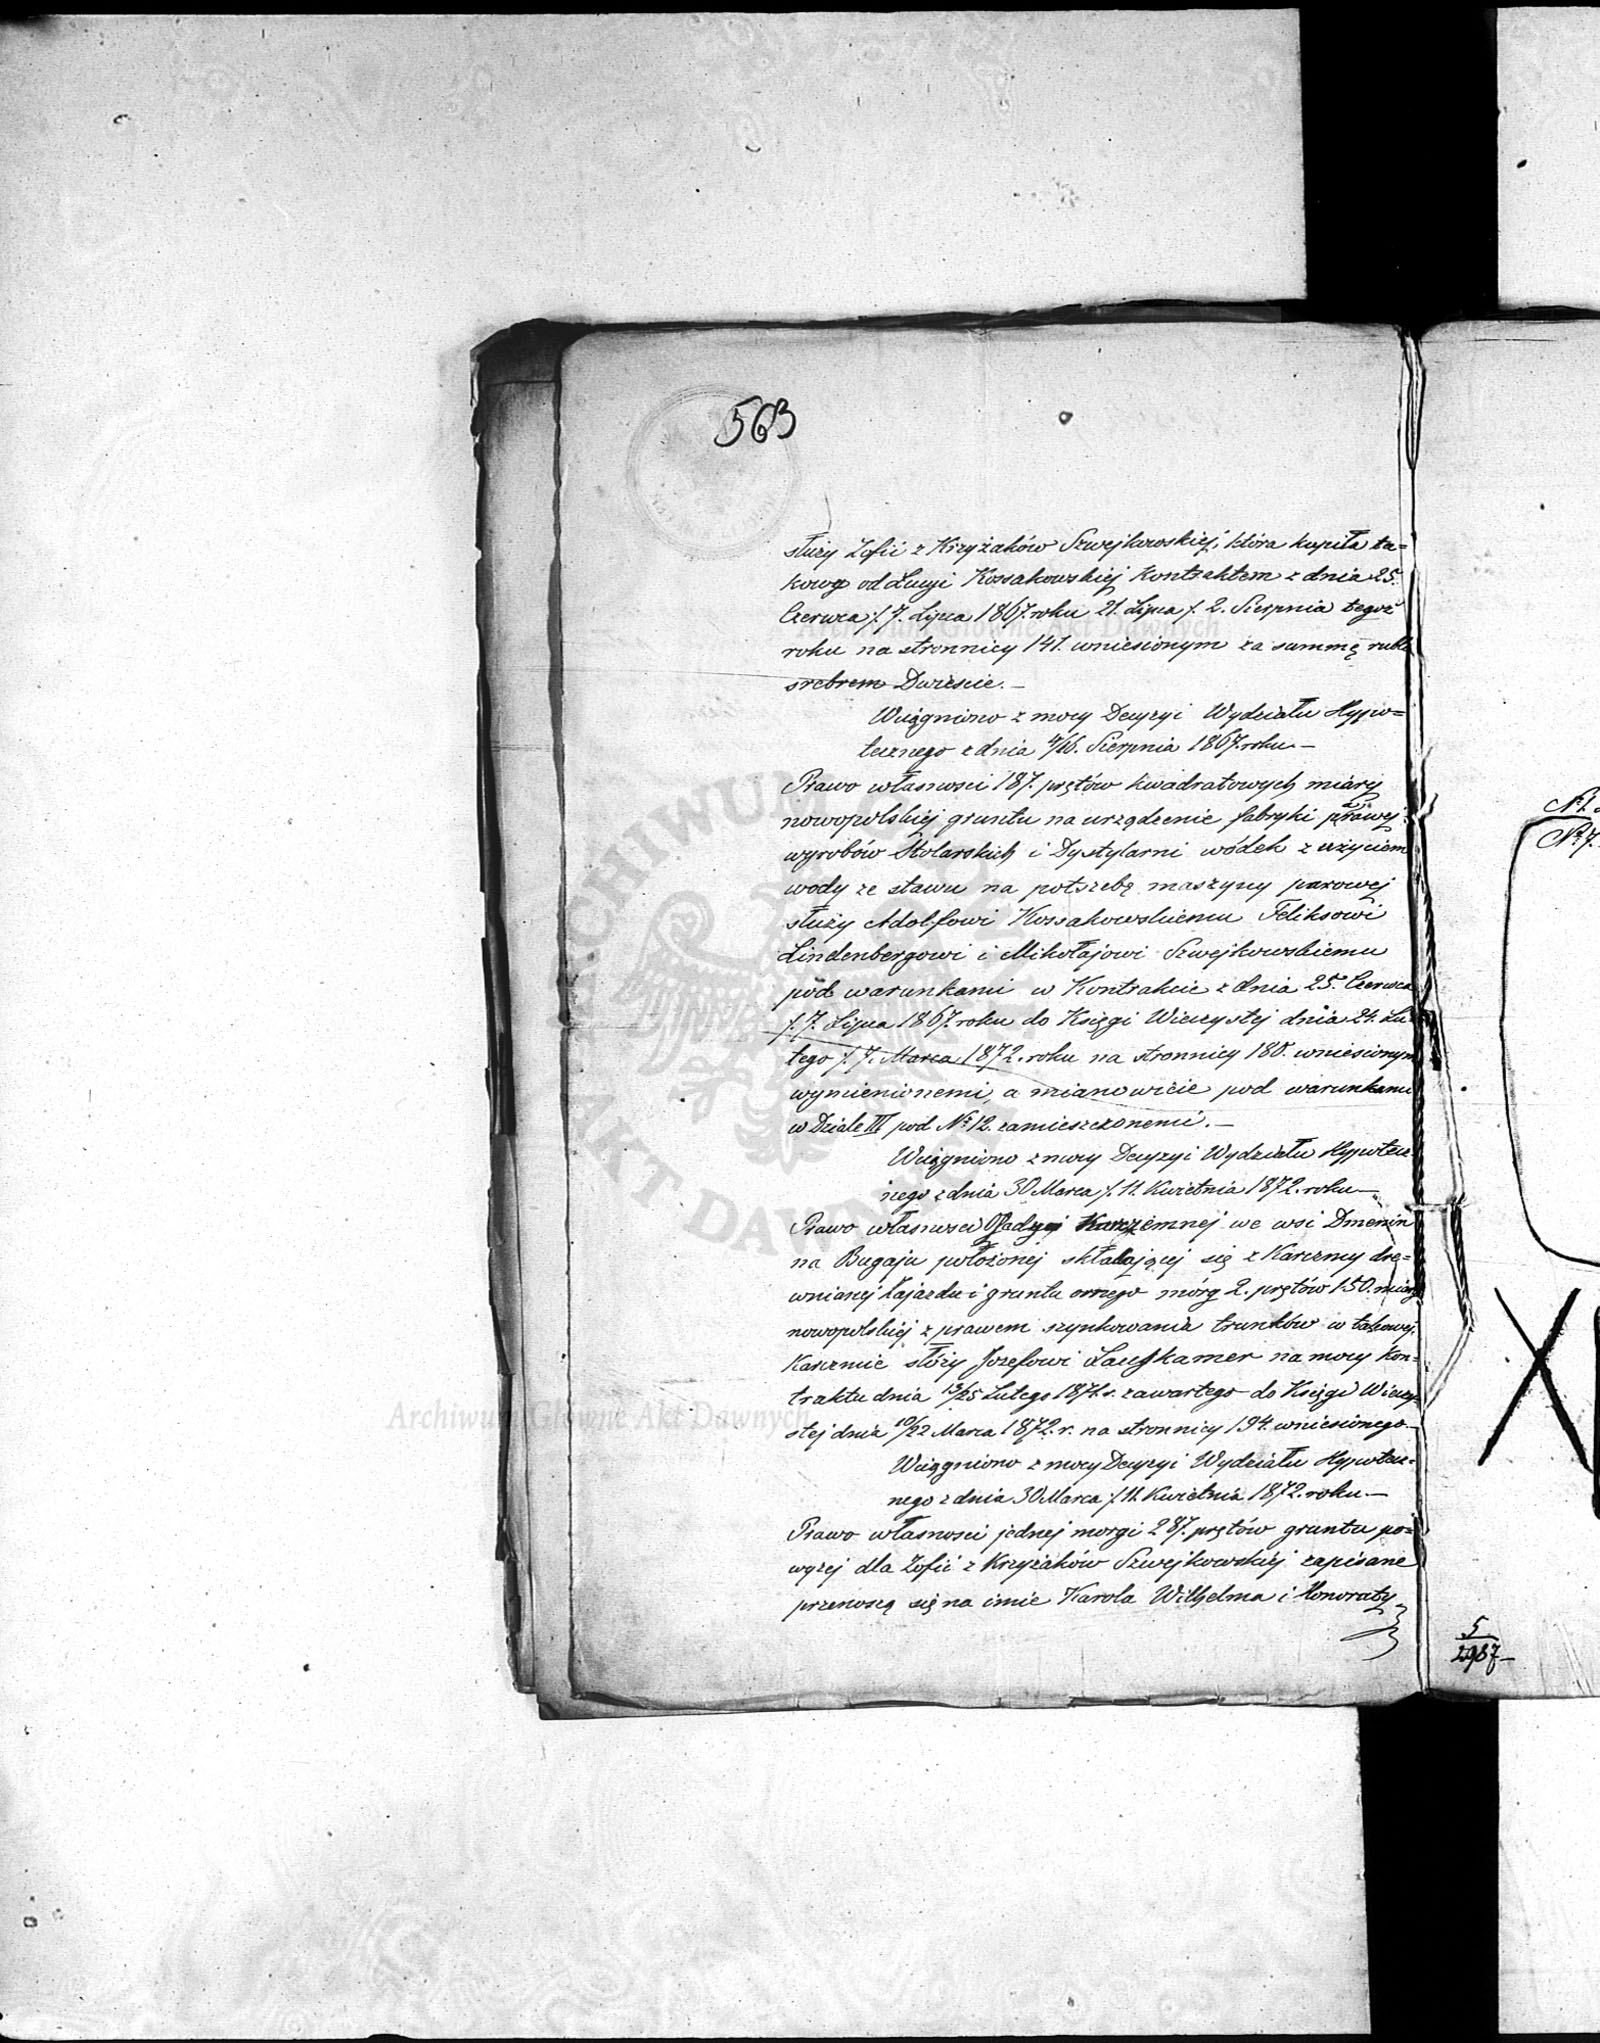 563
służy Zofii z Krzyżaków Szwejkowskiej, która kupiła ta=
kowy od Łucyi Kossakowskiej Kontraktem z dnia 25.
Czerwca /. 7. Lipca 1867. roku 21. Lipca /. 2. Sierpnia tegoż
roku na stronnicy 141. wniesionym za summę rubli
srebrem Dwieście. —
Wciągniono z mocy Decyzyi Wydziału Hypo=
tecznego z dnia 4/16. Sierpnia 1867. roku. —
Prawo własności 187. prętów kwadratowych miary
nowopolskiej gruntu na urządzenie fabryki parowej
wyrobów Stolarskich i Dystylarni wódek z użyciem
wody ze stawu na potrzebę maszyny parowej
służy Adolfowi Kossakowskiemu Feliksowi
Lindenbergowi i Mikołajowi Szwejkowskiemu
pod warunkami w Kontrakcie z dnia 25. Czerwca
/. 7. Lipca 1867. roku do Księgi Wieczystej dnia 24. Lu=
tego /. 7. Marca 1872. roku na stronnicy 180. wniesionym
wymienionemi, a mianowicie pod warunkami
w Dziale III pod Nr 12. zamieszczonemi. —
Wciągniono z mocy Decyzyi Wydziału Hypotecz=
nego z dnia 30 Marca /. 11. Kwietnia 1872. roku —
Prawo własności Osady Karczemnej we wsi Dmenin
na Bugaju położonej składającej się z Karczmy dre=
wnianej Zajazdu i gruntu ornego mórg 2. prętów 150. miary
nowopolskiej z prawem szynkowania trunków w takowej
Karczmie słóży Jozefowi Laufkamer na mocy Kon=
traktu dnia 13/25 Lutego 1871. r. zawartego do Księgi Wieczy=
stej dnia 10/22 Marca 1872. r. na stronnicy 194. wniesionego. —
Wciągniono z mocy Decyzyi Wydziału Hypotecz=
nego z dnia 30 Marca /. 11. Kwietnia 1872. roku —
Prawo własności jednej morgi 287. prętów gruntu po=
wyżej dla Zofii z Krzyżaków Szwejkowskiej zapisane
przenoszą się na imie Karola Wilhelma i Honoraty
Nr 7.
5
2987 —
Archiwum Główne Akt Dawnych
Archiwum Główne Akt Dawnych
ARCHIWUM
AKT DAWNYCH